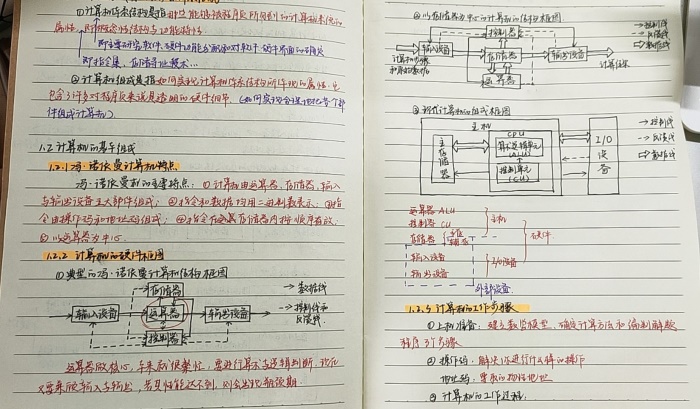 ①计算机体系结构是指那些能够被程序员所见到的计算机系统的
属性，即概念性结构与功能特性
即主要研究软件、硬件功能分配和对软件、硬件界面的确定
即指令集、存储寻址技术…
②计算机组成是指如何实现计算机体系结构所体现的属性，它
包含了许多对程序员来说是透明的硬件细节。（如何实现合理地把各个部
件组成计算机）
1.2 计算机的基本组成
1.2.1 冯·诺依曼计算机特点
冯·诺依曼机的主要特点：①计算机由运算器、存储器、输入
与输出设备五大部件组成；②指令和数据均用二进制数表示；③指
令由操作码和地址码组成；④指令在存储器内按顺序存放；
⑤以运算器为中心。
1.2.2 计算机的硬件框图
①典型的冯·诺依曼计算机结构框图
存储器
输入设备
运算器
输出设备
控制器
→ 数据线
⇢ 控制线和
反馈线。
运算器做核心，
②以存储器为中心的计算机的结构框图
控制器
输入设备
存储器
输出设备
运算器
计算步骤
和原始数据
计算结果
控制线
反馈线
数据线
③现代计算机的组成框图
主机
主存储器
CPU
算术逻辑单元
(ALU)
控制单元
(CU)
I/O设备
控制线
反馈线
数据线
运算器 ALU
控制器 CU
存储器
主存
辅存
主机
硬件
输入设备
输出设备
I/O设备
外部设备
1.2.3 计算机的工作步骤
①上机准备：建立数学模型，确定计算方法和编制解题
程序3个步骤
②操作码：解决你进行什么样的操作
地址码：要取的物理地址
③计算机的工作过程：